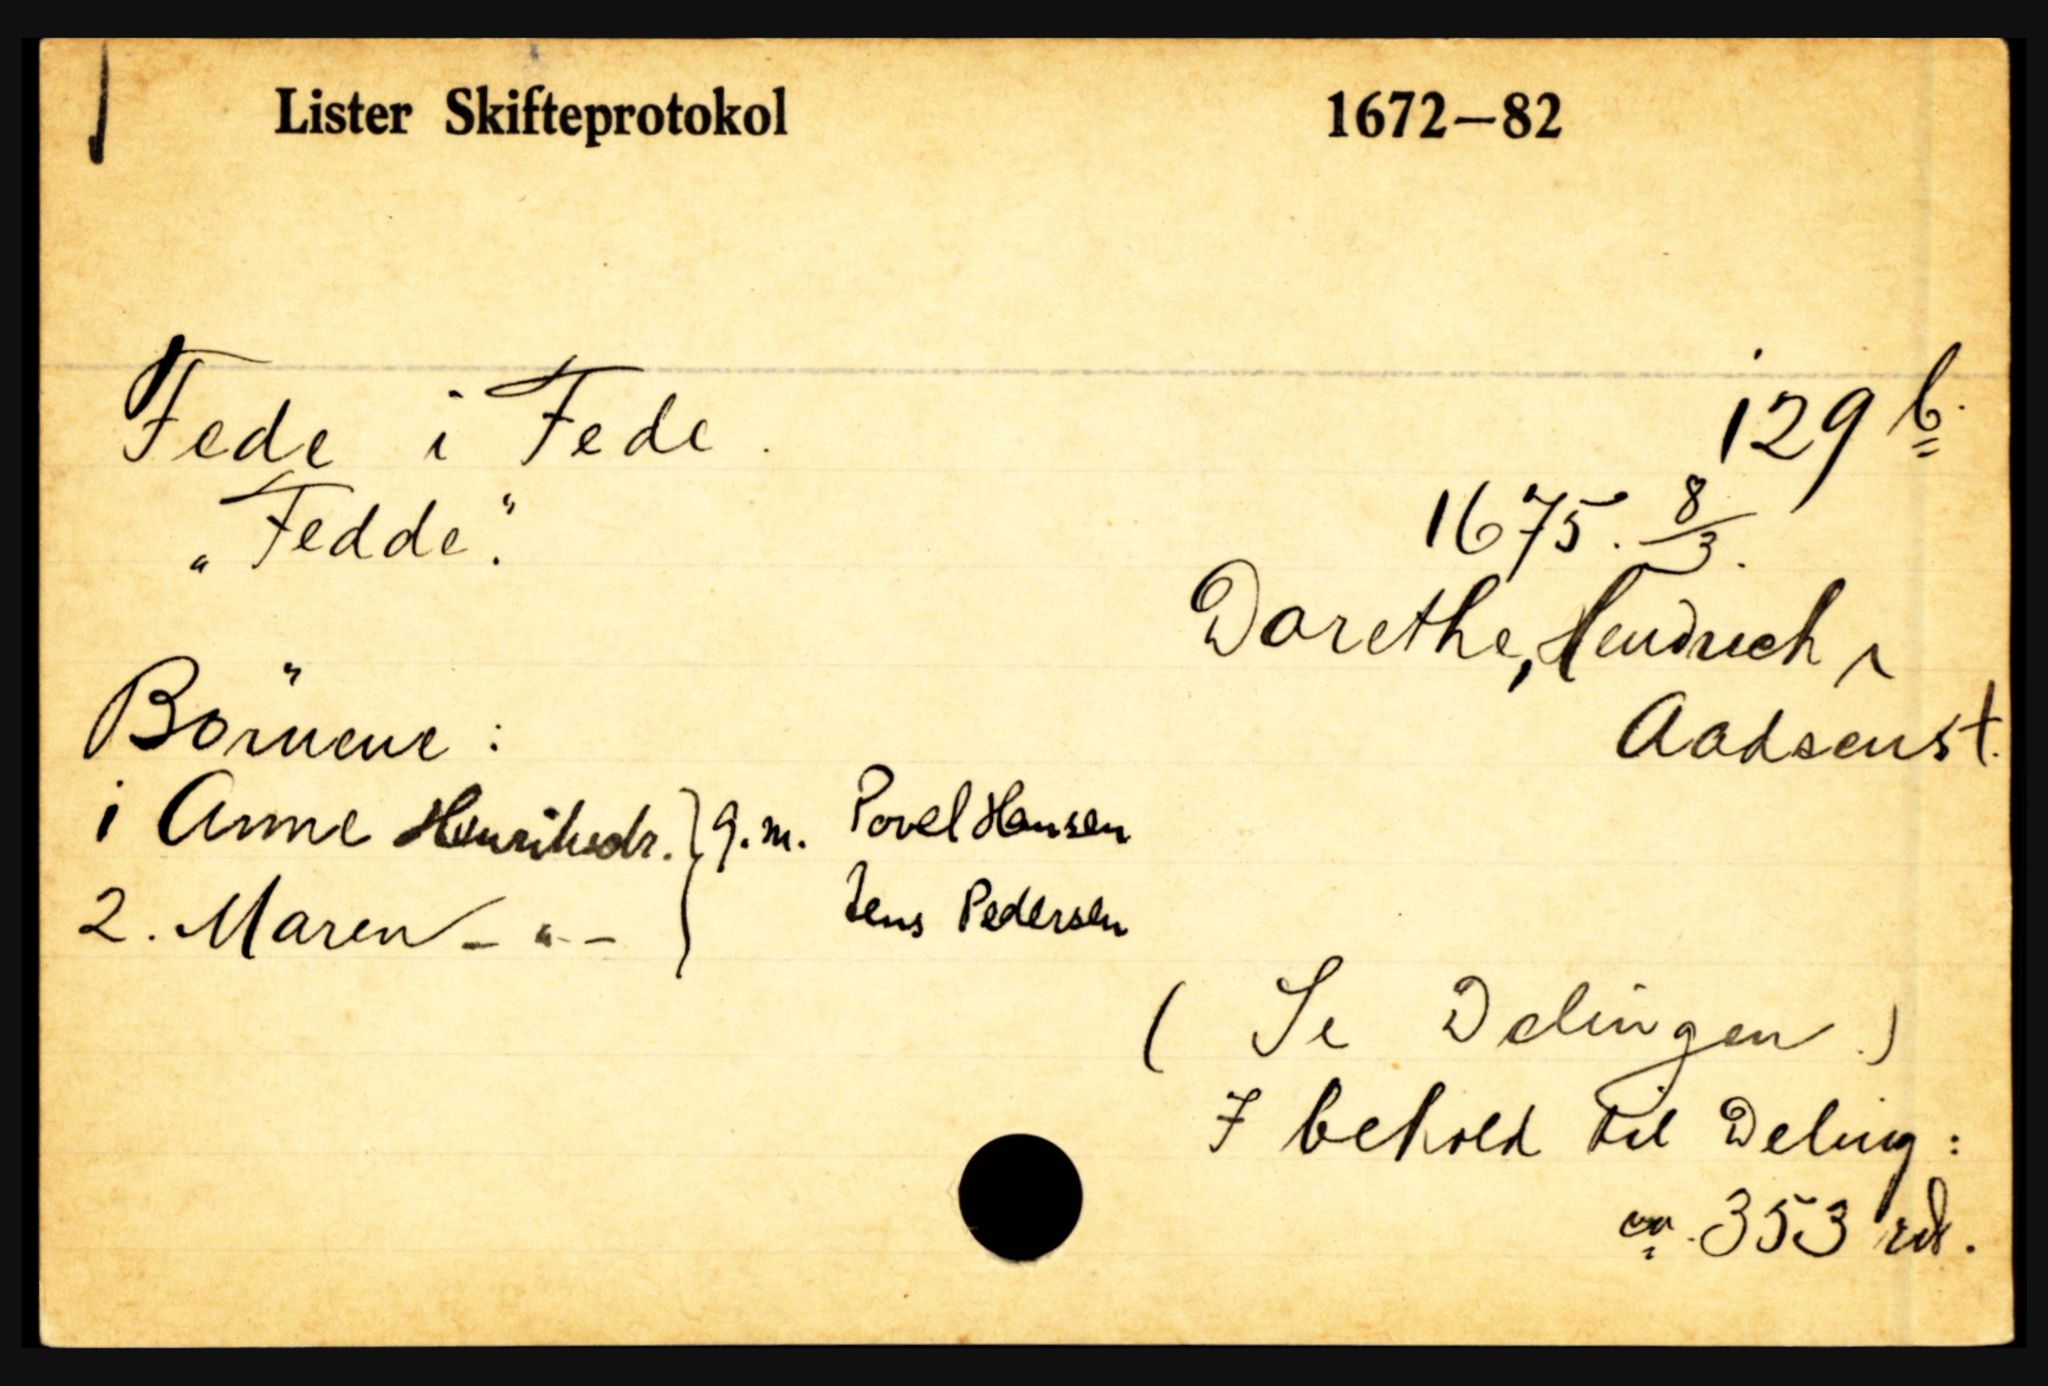 Lister Skifteprotokol 1672–82
Fede i Fede. 129 b.
„Fedde“. 1675. 8/3.
Dorethe, Hendrich
Börnene: Aadsens
1 Anne Henriksdr. } g.m. Povel Hansen
2. Maren — „ — } Jens Pedersen
( Se Delingen. )
I behold til Deling:
ca. 353 rd.